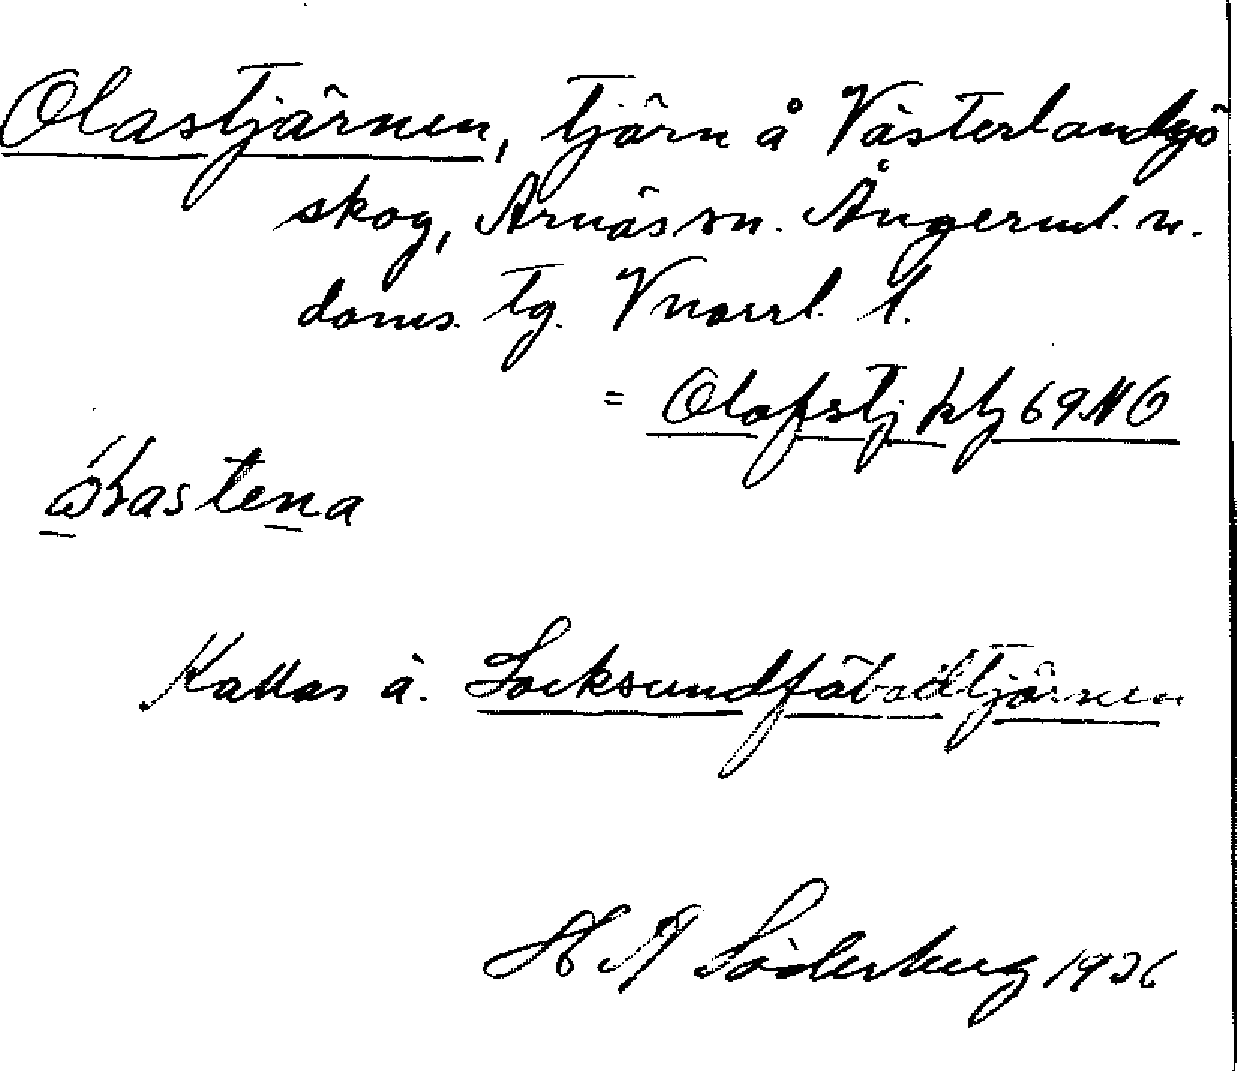 Olastjärnen, tjärn å Västerlandsjö
skog, Arnäs sn. Ångerml. n.
doms. tg. Vnorrl. l.
= Olofstj ktj 69 NO
Kallas ä. Locksundfäbodtjärnen
H A Söderberg 1936